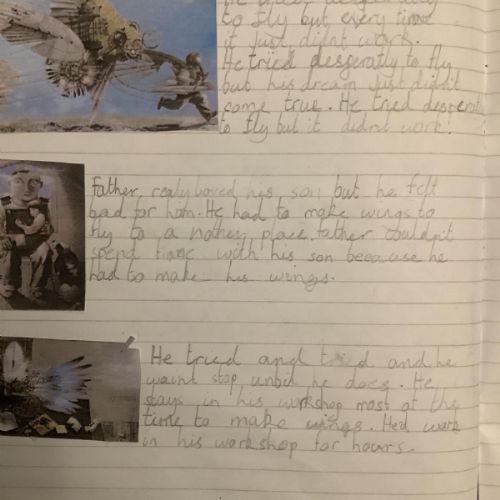 He tried desperatly
to fly but every time
it just didnt work.
He tried desperatly to fly
but his dream just didn't
come true. He tried desperatly
to fly but it didnt work!
Father realy loved his son but he felt
bad for him. He had to make wings to
fly to a nother place. father couldn't
spend time with his son because he
had to make his wings.
He tried and tried and he
waint stop until he does. He
stays in his workshop most of the
time to make wings. He'd work
in his workshop for hours.